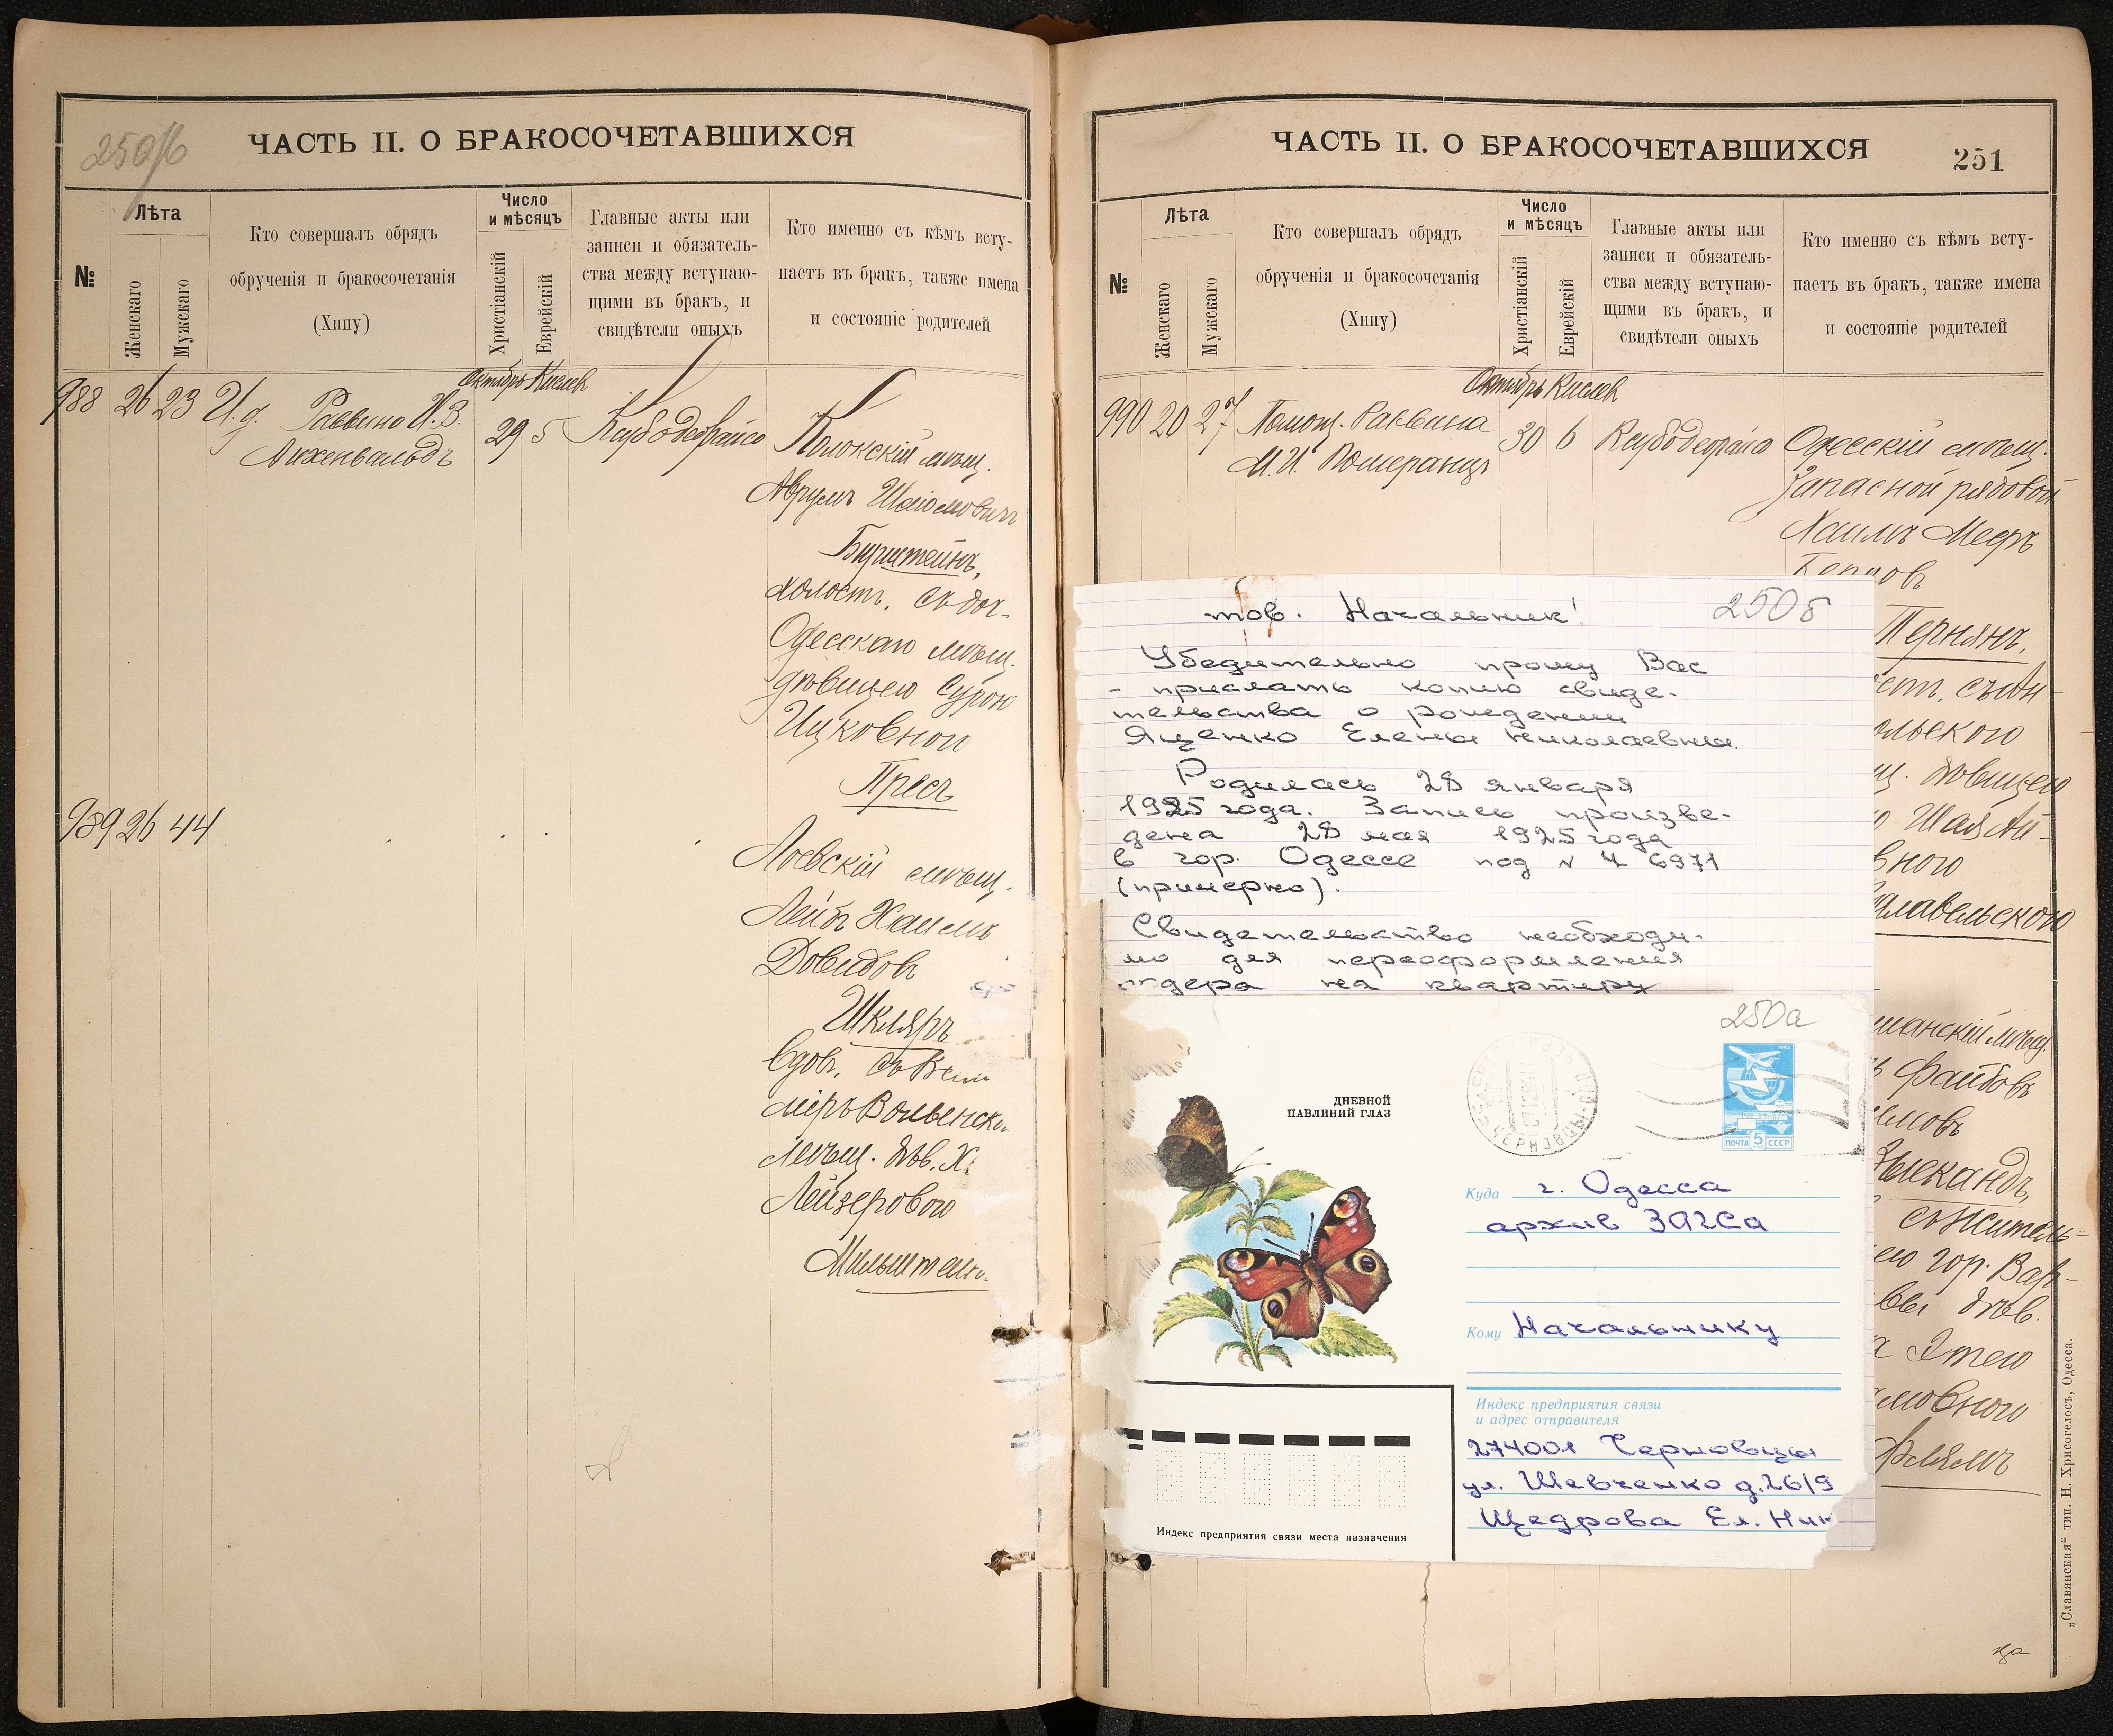 250б
ЧАСТЬ II. О БРАКОСОЧЕТАВШИХСЯ
№
Лѣта
Женскаго
Мужскаго
Кто совершалъ обрядъ
обрученія и бракосочетанія
(Хипу)
Число
и мѣсяцъ
Христіанскій
Еврейскій
Главные акты или
записи и обязатель-
ства между вступаю-
щими въ бракъ, и
свидѣтели оныхъ
Кто именно съ кѣмъ всту-
паетъ въ бракъ, также имена
и состояніе родителей
Октябрь Кислев
988 26 23 И.д. Раввина И.В.
Айхенвальдъ
29 5
Полокскій мѣщ.
Аврумъ Шаіомовичъ
Бурштейнъ,
холостъ, съ доч-
Одесскаго мѣщ.
дѣвицею Сурою
Ицковной
Пресъ
989 26 44
Лоевскій мѣщ.
Лейбъ Хаимъ
Довидовъ
Шкляръ
вдов,
мѣщ. дѣв. Х
Лейзеровою
Мильштейн
ЧАСТЬ II. О БРАКОСОЧЕТАВШИХСЯ
251
№
Лѣта
Женскаго
Мужскаго
Кто совершалъ обрядъ
обрученія и бракосочетанія
(Хипу)
Число
и мѣсяцъ
Христіанскій
Еврейскій
Главные акты или
записи и обязатель-
ства между вступаю-
щими въ бракъ, и
свидѣтели оныхъ
Кто именно съ кѣмъ всту-
паетъ въ бракъ, также имена
и состояніе родителей
Октябрь Кислев
990 20 27 Помощ. Раввина
М.И. Померанцъ
30 6
Одесскій мѣщ.
Запасной рядовой
Хаимъ Мееръ
Пернянъ,
ольского
дѣвицею
Шая
вного
славельского
манскій мѣщ.
Файбовъ
Зыскандъ,
съ житель-
ею гор. Вар-
вы дѣв.
Этею
мовною
тов. Начальник!
250б
Убедительно прошу Вас
- прислать копию свиде-
тельства о рождении
Яценко Елены Николаевны.
Родилась 28 января
1925 года. Запись произве-
дена 28 мая 1925 года
в гор. Одессе под № 4 6971
(примерно).
Свидетельство необходи-
мо для переоформления
ордера на квартиру
250а
ДНЕВНОЙ
ПАВЛИНИЙ ГЛАЗ
ЧЕРНОВЦЫ
ПОЧТА 5 СССР
Куда г. Одесса
архив ЗАГСа
Кому Начальнику
Индекс предприятия связи
и адрес отправителя
274001 Черновцы
ул. Шевченко д.26/9
Щедрова Ел. Ник
Индекс предприятия связи места назначения
„Славянская“ тип. Н. Хрисогелосъ, Одесса.